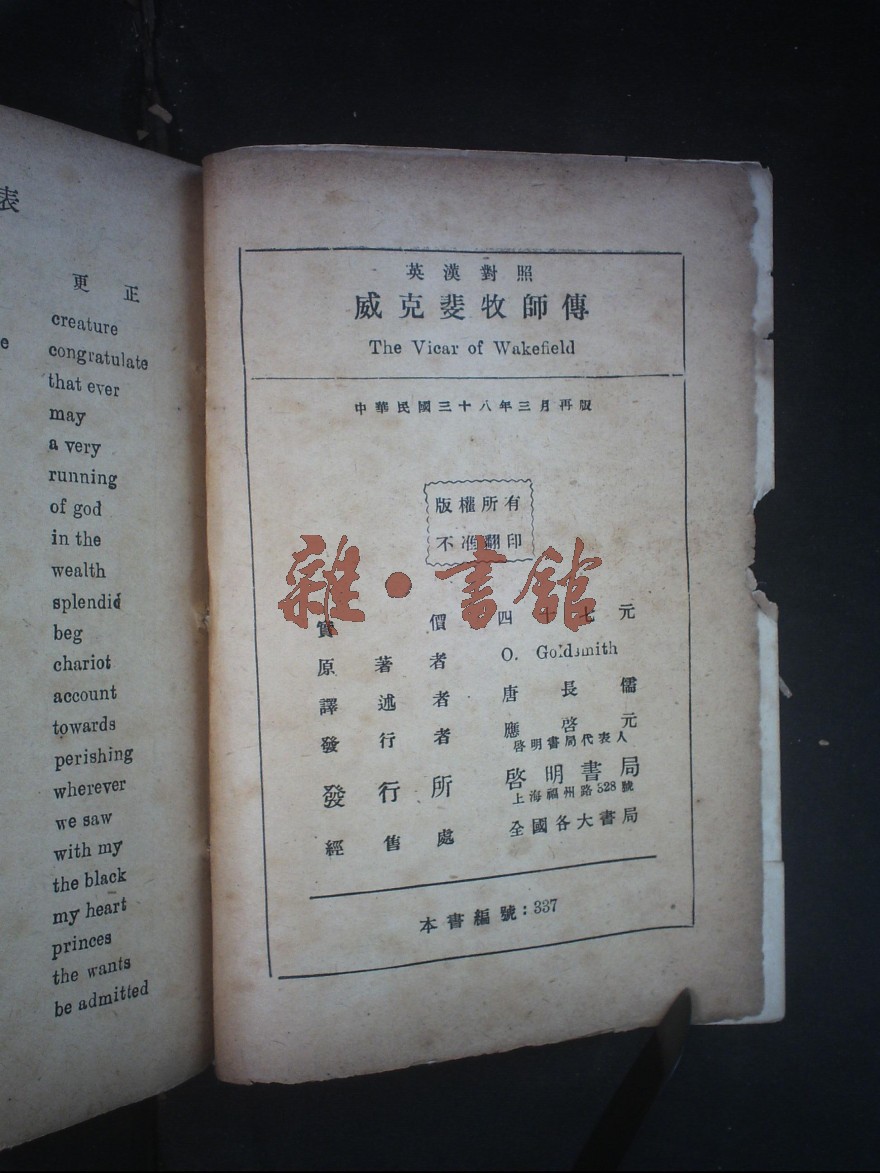 表
更正
creature
e
congratulate
that ever
may
a very
running
of god
in the
wealth
splendid
beg
chariot
account
towards
perishing
wherever
we saw
with my
the black
my heart
princes
the wants
be admitted
英漢對照
威克斐牧師傳
The Vicar of Wakefield
中華民國三十八年三月再版
版權所有
不准翻印
雜·書館
實價 四十七元
原著者 O. Goldsmith
譯述者 唐長儒
發行者 應啓元
啓明書局代表人
發行所 啓明書局
上海福州路328號
經售處 全國各大書局
本書編號：337